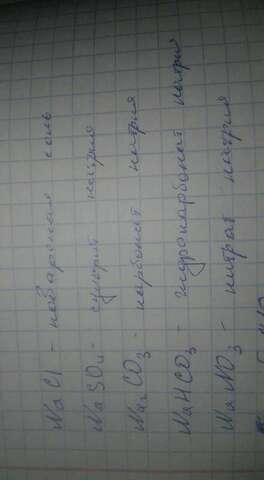 NaCl - поваренная соль
NaSO4 - сульфат натрия
Na2CO3 - карбонат натрия
NaHCO3 - гидрокарбонат натрия
NaNO3 - нитрат натрия